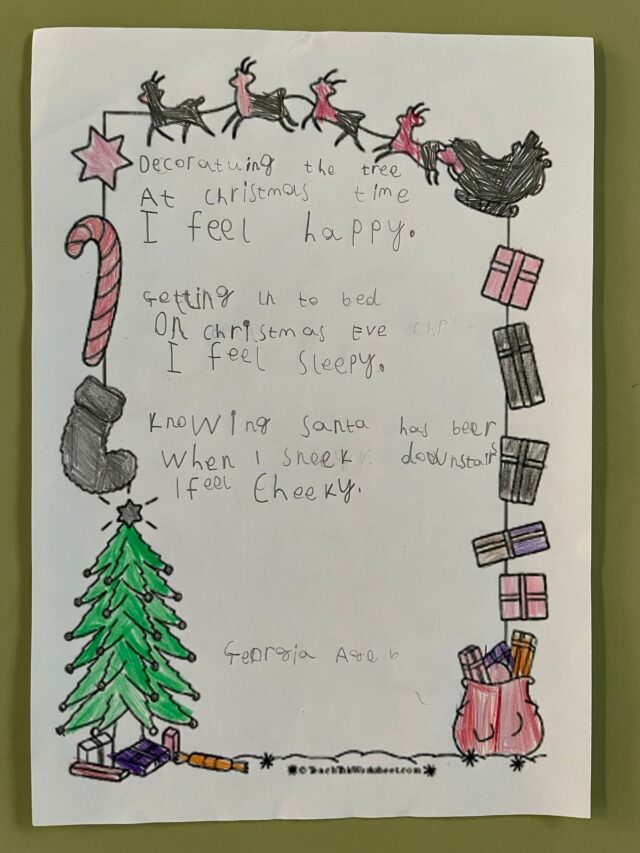 Decoratuing the tree
At christmas time
I feel happy.
Getting in to bed
On christmas Eve
I feel Sleepy.
Knowing santa has been
When I sneek downstairs
I feel Cheeky.
Georgia Age 6